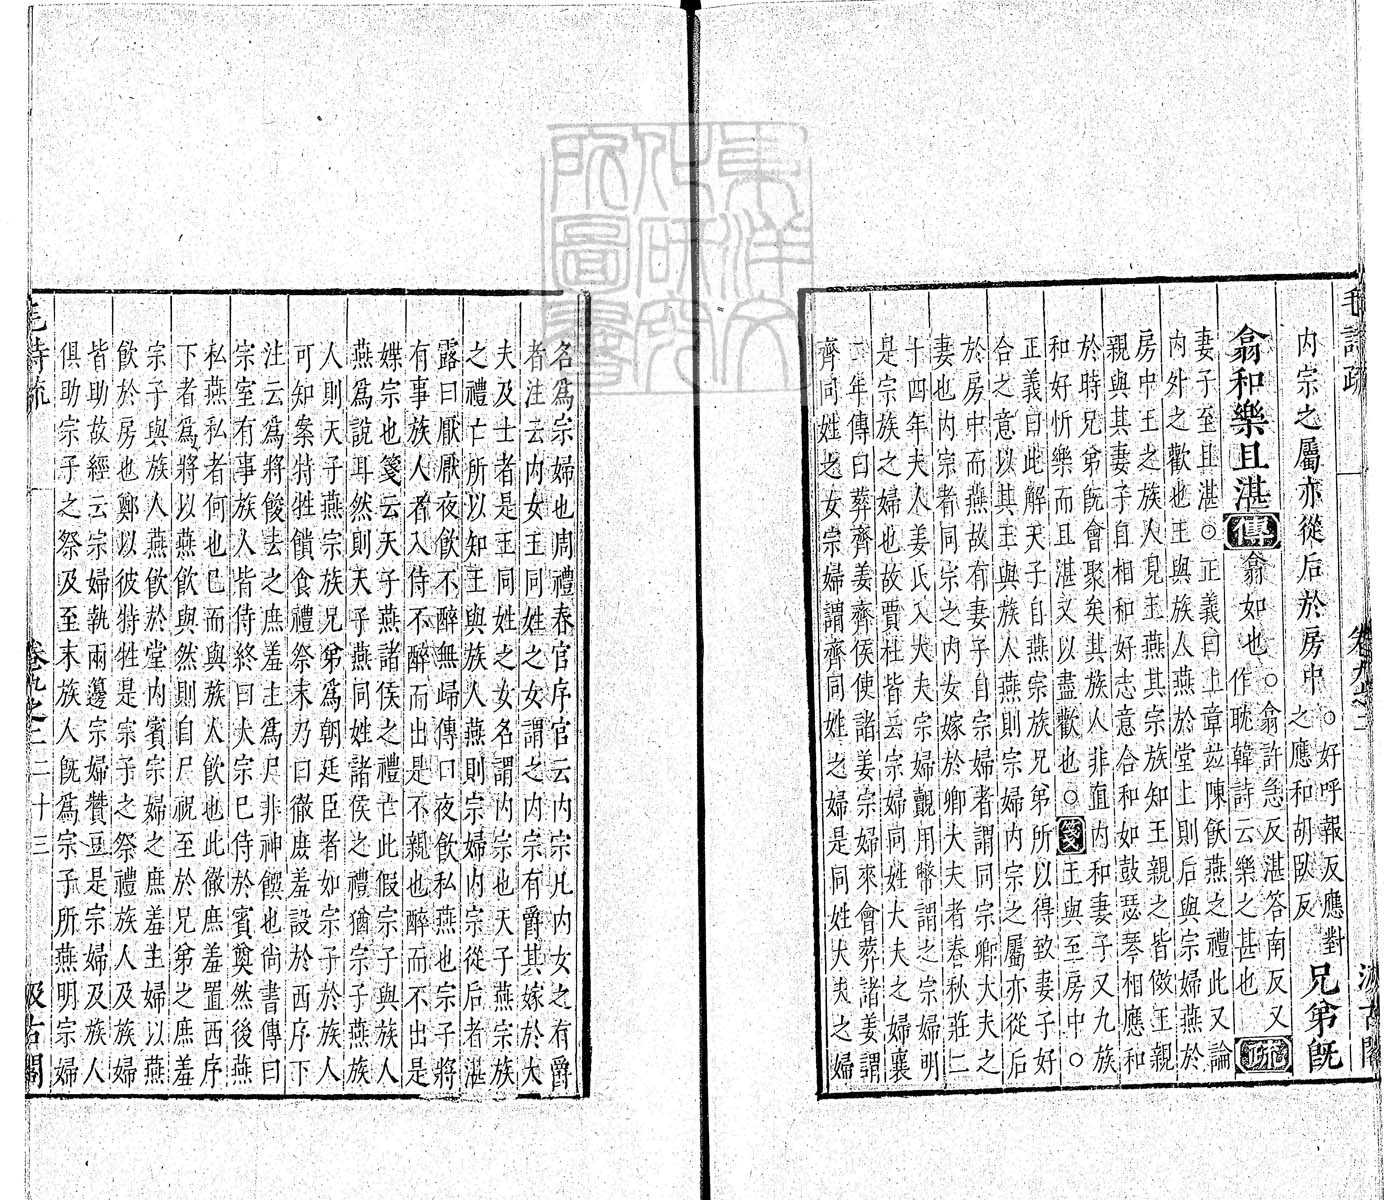 毛詩疏
卷九之二
汲古閣
内宗之屬亦從后於房中
○好呼報反應對
之應和胡臥反
兄弟既
翕和樂且湛傳翕如也
○翕許急反湛答南反又
作耽韓詩云樂之甚也
疏
妻子至且湛○正義曰上章玆陳飫燕之禮此又論
内外之歡也王與族人燕於堂上則后與宗婦燕於
房中王之族人見王燕其宗族知王親之皆傚王親
親與其妻子自相和好志意合和如鼓瑟琴相應和
於時兄弟既會聚矣其族人非直内和妻子又九族
和好忻樂而且湛又以盡歡也○箋王與至房中○
正義曰此解天子自燕宗族兄弟所以得致妻子好
合之意以其王與族人燕則宗婦内宗之屬亦從后
於房中而燕故有妻子自宗婦者謂同宗卿大夫之
妻也内宗者同宗之内女嫁於卿大夫者春秋莊二
十四年夫人姜氏入大夫宗婦覿用幣謂之宗婦明
是宗族之婦也故賈杜皆云宗婦同姓大夫之婦襄
二年傳曰葬齊姜齊侯使諸姜宗婦來會葬諸姜謂
齊同姓之女宗婦謂齊同姓之婦是同姓大夫之婦
名爲宗婦也周禮春官序官云内宗凡内女之有爵
者注云内女王同姓之女謂之内宗有爵其嫁於大
夫及士者是王同姓之女名謂内宗也天子燕宗族
之禮亡所以知王與族人燕則宗婦内宗從后者湛
露曰厭厭夜飲不醉無歸傳曰夜飲私燕也宗子將
有事族人者入侍不醉而出是不親也醉而不出是
媟宗也箋云天子燕諸侯之禮亡此假宗子與族人
燕爲說耳然則天子燕同姓諸侯之禮猶宗子燕族
人則天子燕宗族兄弟爲朝廷臣者如宗子於族人
可知案特牲饋食禮祭末乃曰徹庶羞設於西序下
注云爲將餕去之庶羞主爲尸非神饌也尙書傳曰
宗室有事族人皆侍終曰大宗已侍於賓奠然後燕
私燕私者何也已而與族人飲也此徹庶羞置西序
下者爲將以燕飲與然則自尸祝至於兄弟之庶羞
宗子與族人燕飲於堂内賓宗婦之庶羞主婦以燕
飲於房也鄭以彼特牲是宗子之祭禮族人及族婦
皆助故經云宗婦執兩籩宗婦贊豆是宗婦及族人
俱助宗子之祭及至末族人既爲宗子所燕明宗婦
毛詩疏
卷九之二
二十三
汲古閣